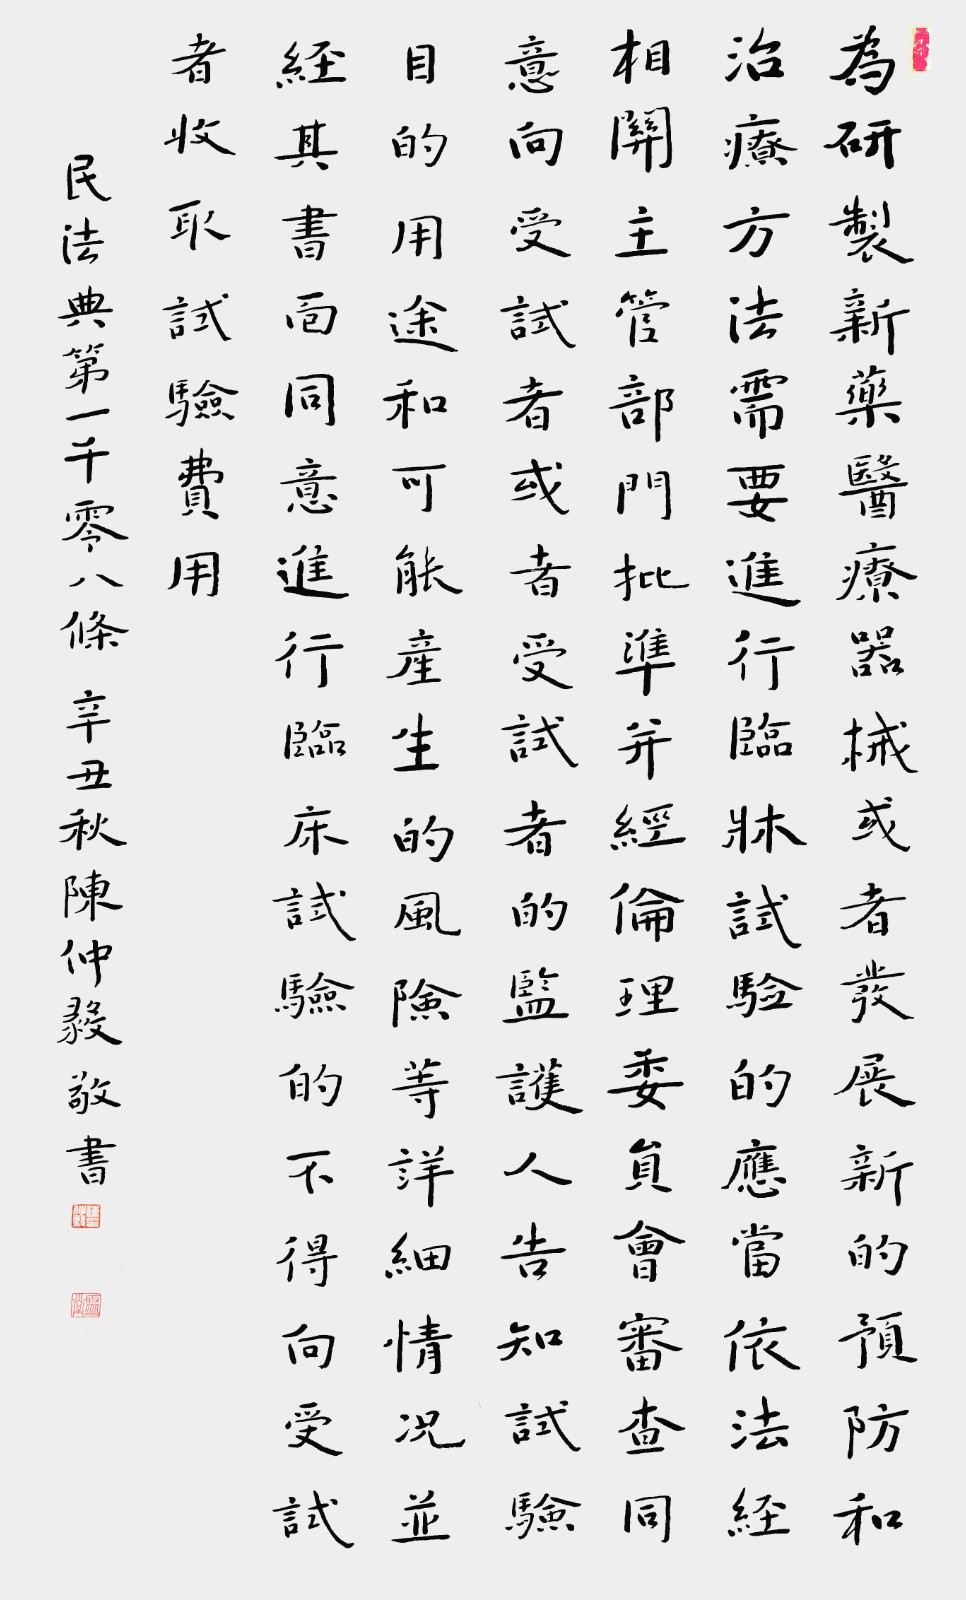 為研製新藥醫療器械或者發展新的預防和
治療方法需要進行臨牀試驗的應當依法經
相關主管部門批準并經倫理委員會審查同
意向受試者或者受試者的監護人告知試驗
目的用途和可能產生的風險等詳細情况並
經其書面同意進行臨床試驗的不得向受試
者收取試驗費用
民法典第一千零八條 辛丑秋陳仲毅敬書